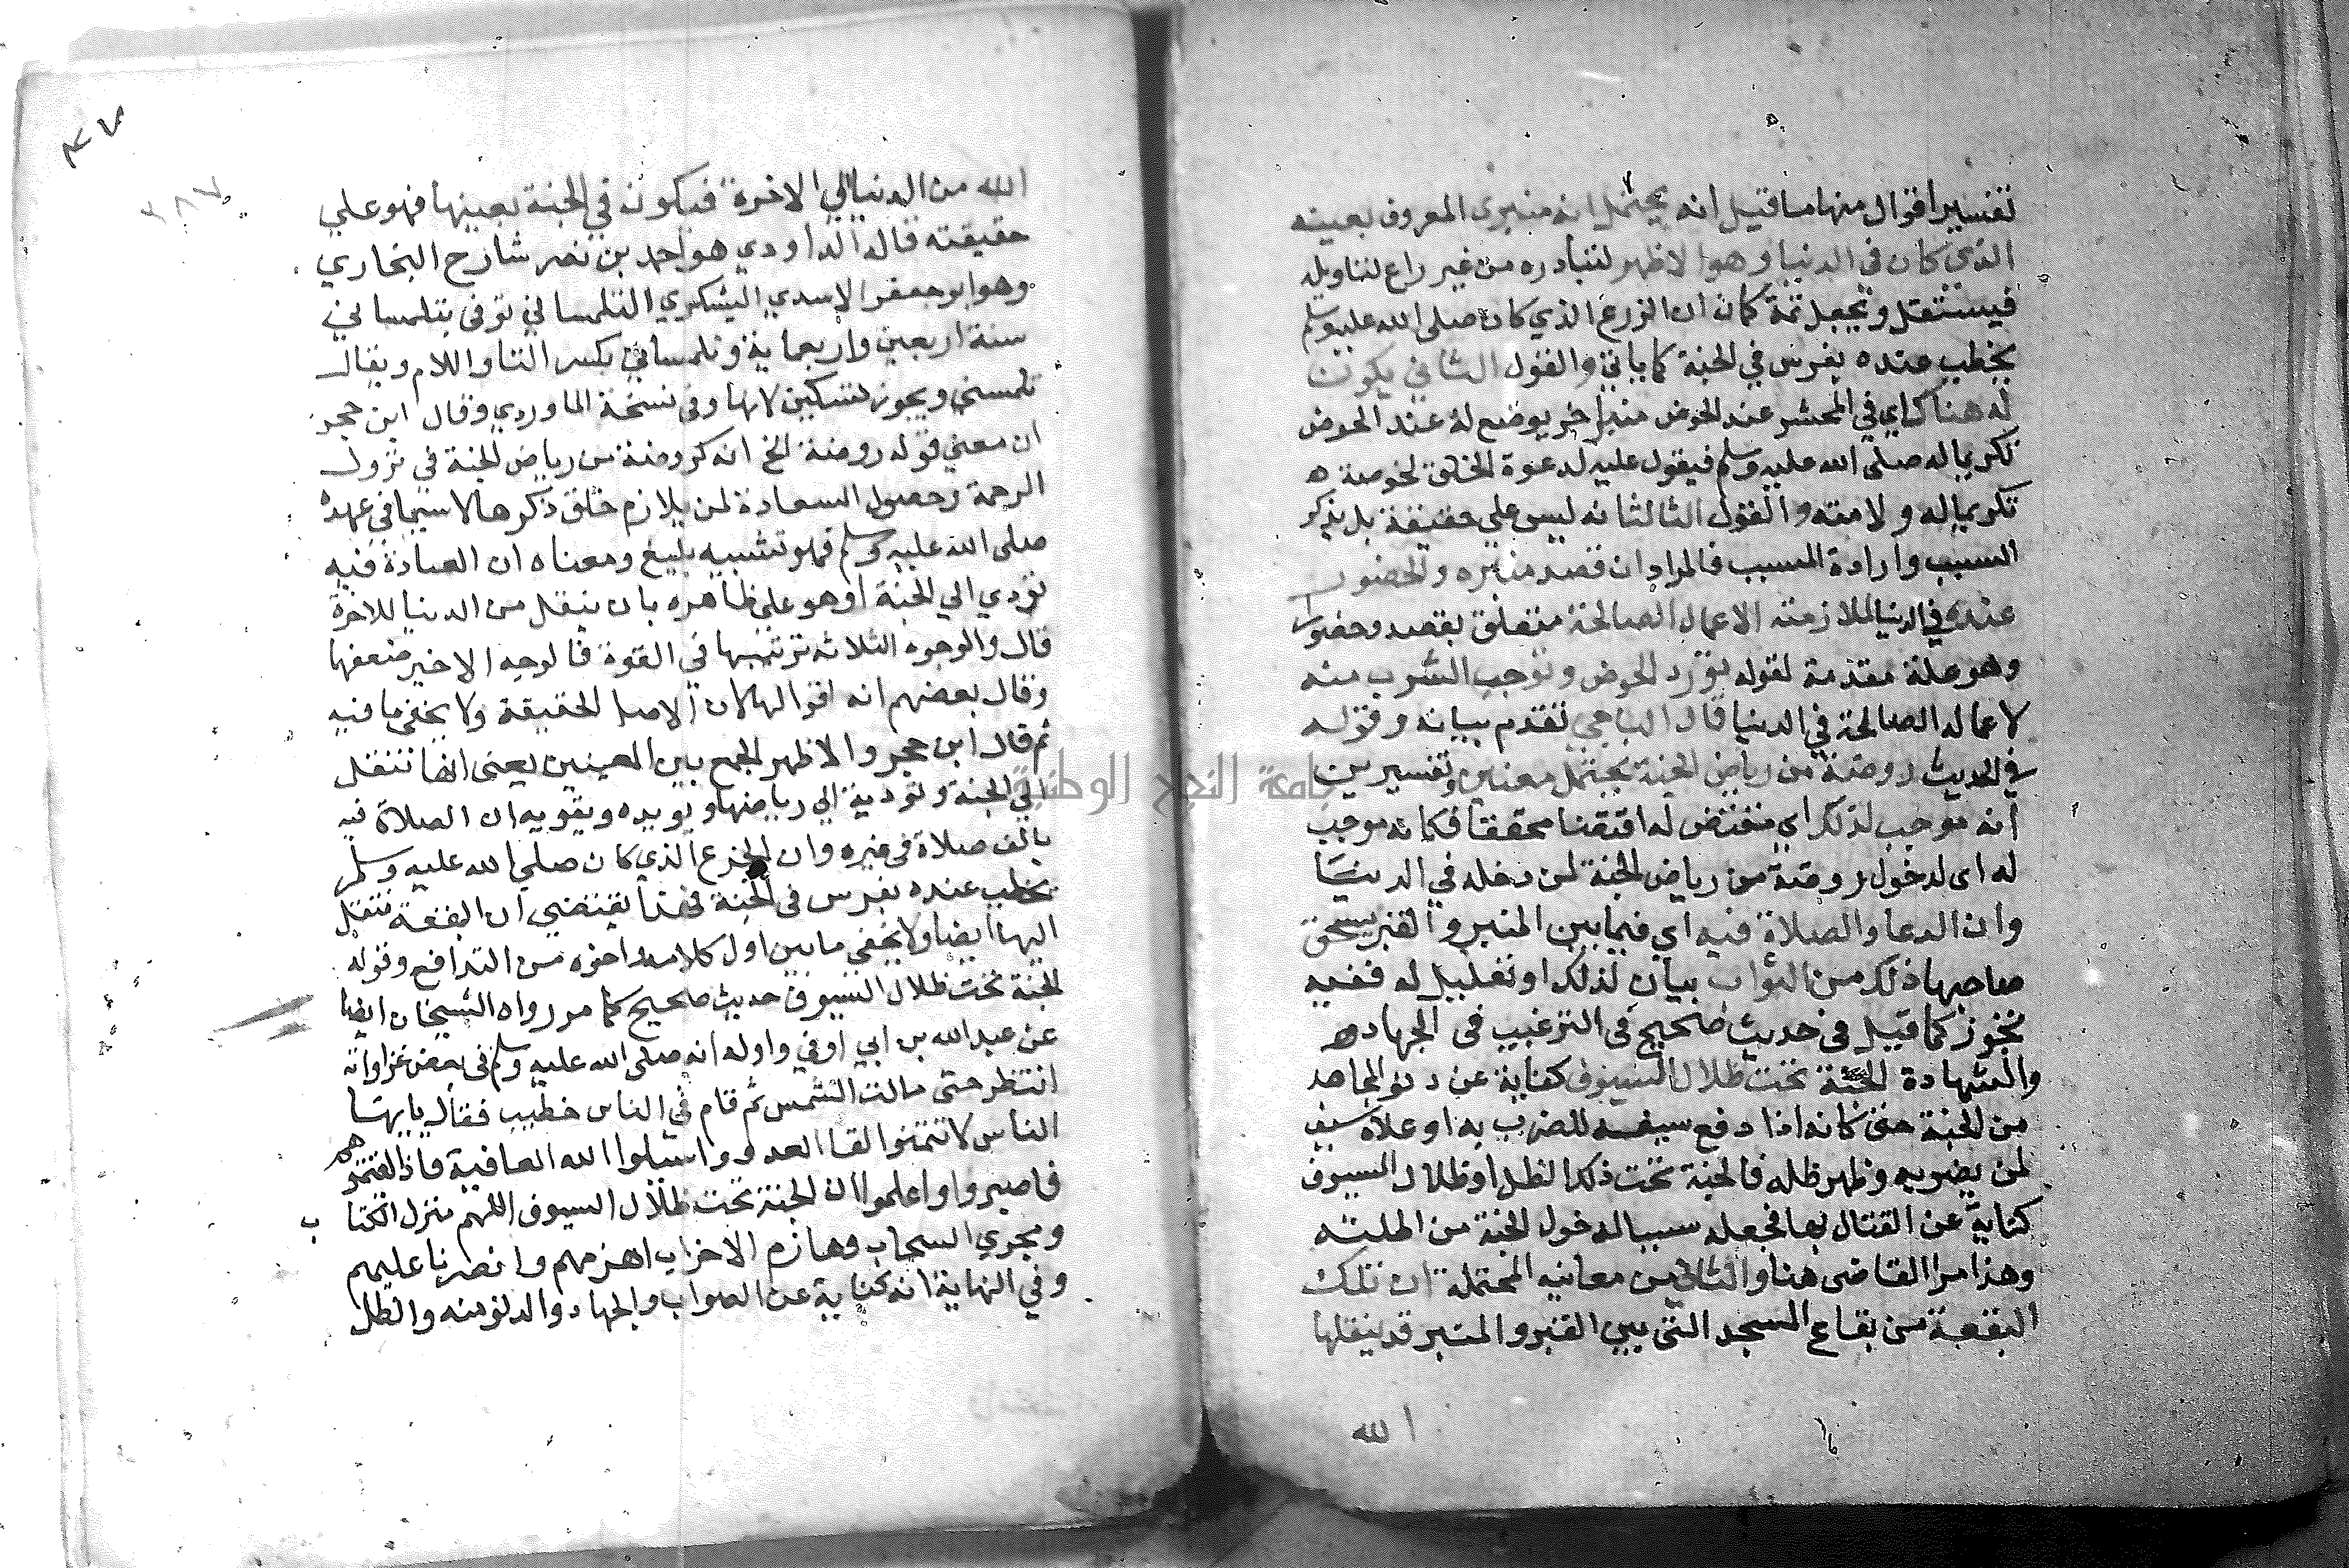 تفسيرا قوال منها ما قيل انه يحتمل انه منبري المعروف بعينه
الذي كان في الدنيا وهو الاظهر لتبادره من غير داع لتاويله
فيستقل ويجعل ثمة كمان ان الزرع الذي كان صلى الله عليه وسلم
يخطب عنده يغرس في الجنة كما ياتي والقول الثاني يكون
له هناك اي في المحشر عند الحوض منبرا خر يوضع له عند الحوض
تكريما له صلى الله عليه وسلم فيقول عليه لدعوة الخلق لحوضه ه
تكريما له ولامته والقول الثالث انه ليس علي حقيقة بل يذكر
السبب وارادة المسبب فالمراد ان قصد منبره والحضور
عنده في الدنيا لملازمته الاعمال الصالحة متعلق بقصد وحضور
وهو علة مقدمة لقوله يورد الحوض ويوجب الشرب منه
لاعماله الصالحة في الدنيا قال الباجي تقدم بيانه وقوله
في الحديث روضة من رياض الجنة يحتمل معنيين وتفسيرين
انه موجب لذلك اي مقتض له اقتضا محققا فكانه موجب
له اي لدخول روضة من رياض الجنة لمن دخله في الدنيا
وان الدعا والصلاة فيه اي فيما بين المنبر والقبر يستحق
صاحبها ذلك من الثواب بيان لذلك او تعليل له ففيه
تجوز كما قيل في حديث صحيح في الترغيب في الجهاد ه
والشهادة الجنة تحت ظلال السيوف كناية عن دنو المجاهد
من الجنة حتى كانه اذا دفع سيفه للضرب به او علاه سيف
لمن يضربه وظهر ظله فالجنة تحت ذلك الظل او ظلال السيوف
كناية عن القتال بها فجعله سببا لدخول الجنة من اهلته
وهذا مرا القاضي هنا والثاني من معانيه المحتملة ان تلك
البقعة من بقاع المسجد التي بين القبر والمنبر قد ينقلها
الله
الله من الدنيا الي الاخرة فيكون في الجنة بعينها فهو علي
حقيقته قاله الداودي هو احمد بن نصر شارح البخاري
وهو ابو جعفر الاسدي اليشكري التلمساني توفي بتلمساني
سنة اربعين واربعماية وتلمساني بكسر التا واللام ويقال
تلمسني ويجوز تسكين لامها وفي نسخة الماوردي وقال ابن حجر
ان معني قوله روضة الخ انه كروضة من رياض الجنة في نزول
الرحمة وحصول السعادة لمن يلازم حلق ذكرها لا سيما في عهده
صلى الله عليه وسلم فهو تشبيه بليغ ومعناه ان العبادة فيه
تؤدي الي الجنة او هو على ظاهره بان ينقل من الدنيا للاخرة
قال والوجوه الثلاثه ترتيبها في القوة فالوجه الاخير ضعفها
وقال بعضهم انه اقوالها لان الاصل الحقيقة ولا يخفى ما فيه
ثم قال ابن حجر والاظهر الجمع بين المعنيين يعني انها تنتقل
الي الجنة وتودية الي رياضها ويويده ويقويه ان الصلاة فيه
بالف صلاة في غيره وان الجزع الذي كان صلي الله عليه وسلم
يخطب عنده يغرس في الجنة فهذا يقتضي ان البقعة تنتقل
اليها ايضا ولا يخفى ما بين اول كلامه واخره من التدافع وقوله
الجنة تحت ظلال السيوف حديث صحيح كما مر رواه الشيخان ايضا
عن عبد الله بن ابي اوفي واوله انه صلى الله عليه وسلم في بعض غزواته
انتظر حتى مالت الشمس ثم قام في الناس خطيب فقال يا ايها
الناس لا تتمنوا لقا العدو واسئلوا الله العافية فاذا لقيتموهم
فاصبروا واعلموا ان الجنة تحت ظلال السيوف اللهم منزل الكتاب
ومجري السحاب وهازم الاحزاب اهزمهم وانصرنا عليهم
وفي النهاية انه كناية عن الصواب والجهاد والدنو منه والظل
جامعة النجاح الوطنية